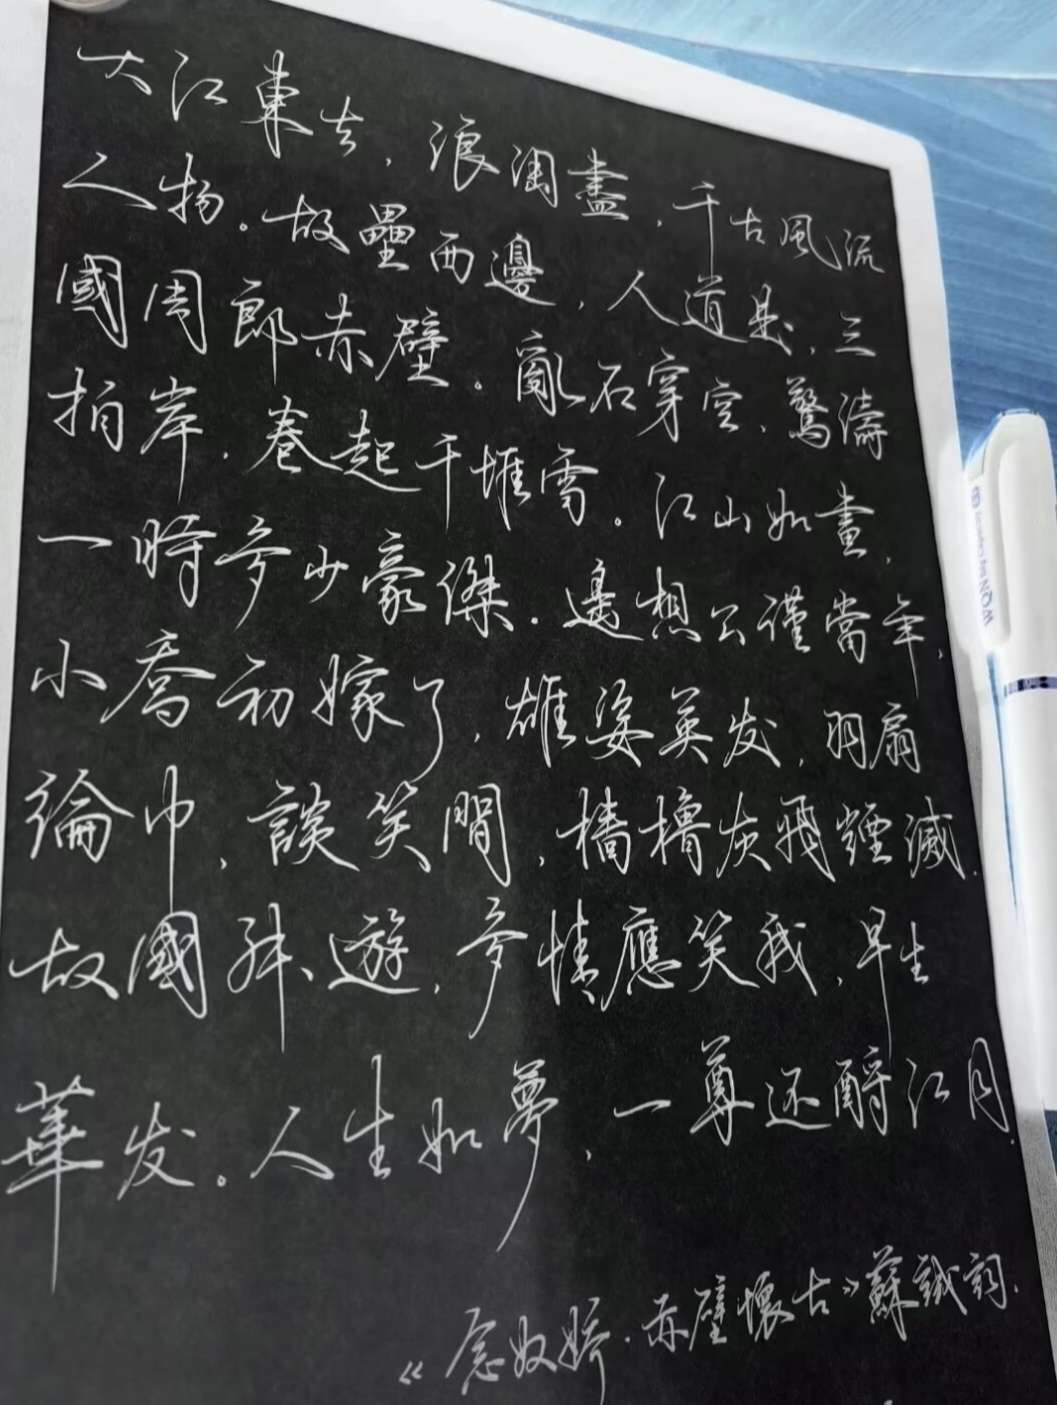 大江東去，浪淘盡，千古風流
人物。故壘西邊，人道是，三
國周郎赤壁。亂石穿空，驚濤
拍岸，卷起千堆雪。江山如畫，
一時多少豪傑。遙想公謹當年，
小喬初嫁了，雄姿英发，羽扇
綸巾，談笑間，檣櫓灰飛煙滅。
故國神遊，多情應笑我，早生
華发。人生如夢，一尊还酹江月。
《念奴嬌·赤壁懷古》蘇軾詞.